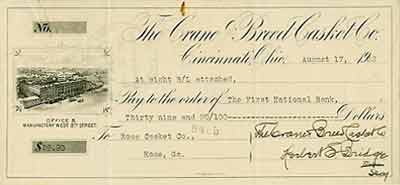 No.
The Crane & Breed Casket Co.
Cincinnati, Ohio, August 17, 190
At sight B/L attached,
Pay to the order of The First National Bank,
Thirty nine and 90/100 Dollars
OFFICE &
MANUFACTORY WEST 8TH STREET.
To Rome Casket Co.,
Rome, Ga.
$39.90
The Crane & Breed Casket Co
Secy